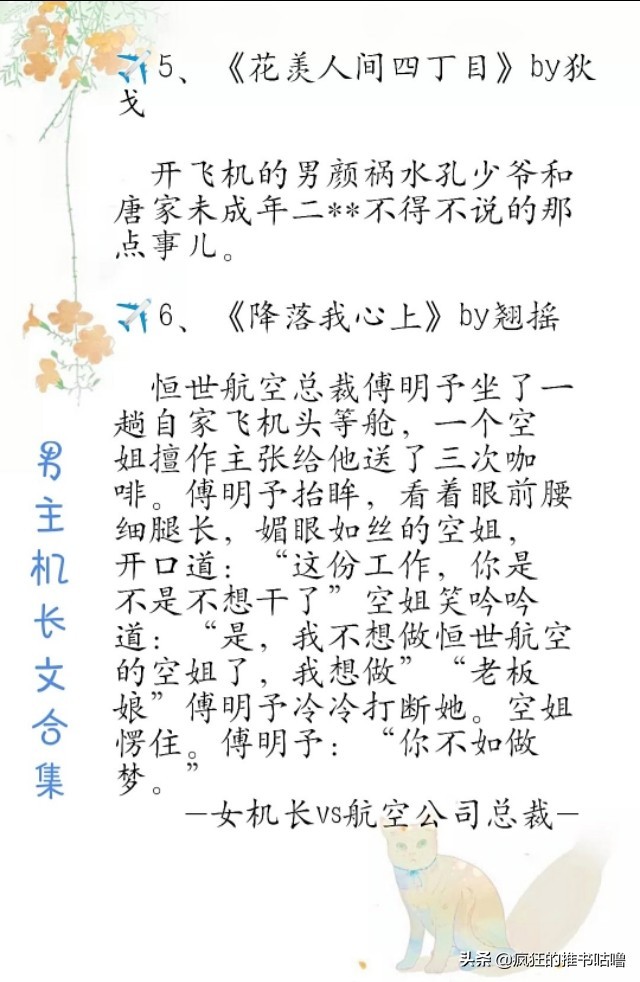 ✈️5、《花羡人间四丁目》by狄
戈
开飞机的男颜祸水孔少爷和
唐家未成年二**不得不说的那
点事儿。
✈️6、《降落我心上》by翘摇
恒世航空总裁傅明予坐了一
趟自家飞机头等舱，一个空
姐擅作主张给他送了三次咖
啡。傅明予抬眸，看着眼前腰
细腿长，媚眼如丝的空姐，
开口道：“这份工作，你是
不是不想干了”空姐笑吟吟
道：“是，我不想做恒世航空
的空姐了，我想做”“老板
娘”傅明予冷冷打断她。空姐
愣住。傅明予：“你不如做
梦。”
—女机长vs航空公司总裁—
男主机长文合集
头条 @疯狂的推书咕噜